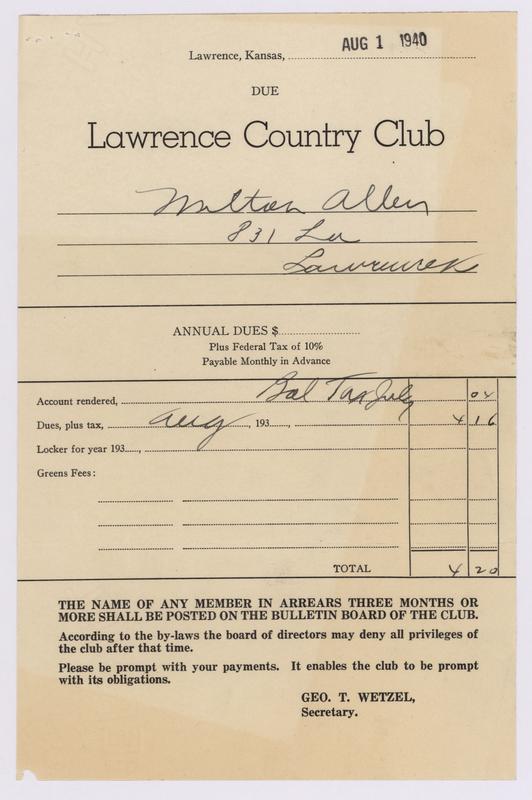 Lawrence, Kansas, AUG 1 1940
DUE
Lawrence Country Club
Milton Allen
831 La
Lawrence K
ANNUAL DUES $
Plus Federal Tax of 10%
Payable Monthly in Advance
Account rendered, Bal Tax July 04
Dues, plus tax, Aug, 193...., 4 16
Locker for year 193....,
Greens Fees:
TOTAL 4 20
THE NAME OF ANY MEMBER IN ARREARS THREE MONTHS OR
MORE SHALL BE POSTED ON THE BULLETIN BOARD OF THE CLUB.
According to the by-laws the board of directors may deny all privileges of
the club after that time.
Please be prompt with your payments. It enables the club to be prompt
with its obligations.
GEO. T. WETZEL,
Secretary.